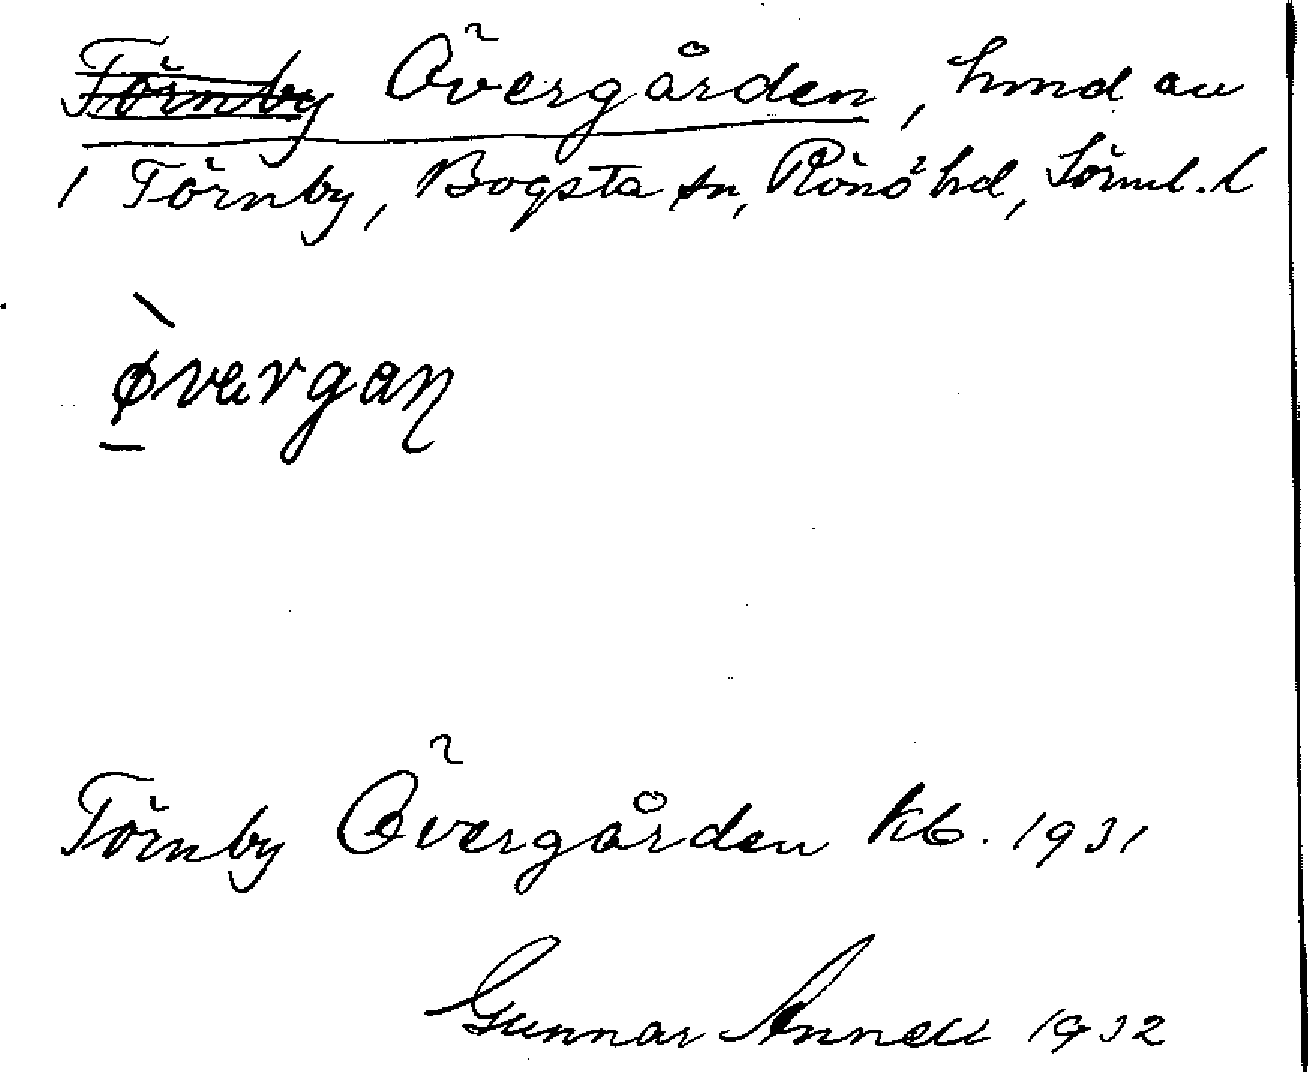 Törnby Övergården, hmd av
1 Törnby, Bogsta sn, Rönö hd, Sörml. l
øvargaɳ
Törnby Övergården Kb. 1931
Gunnar Annell 1932